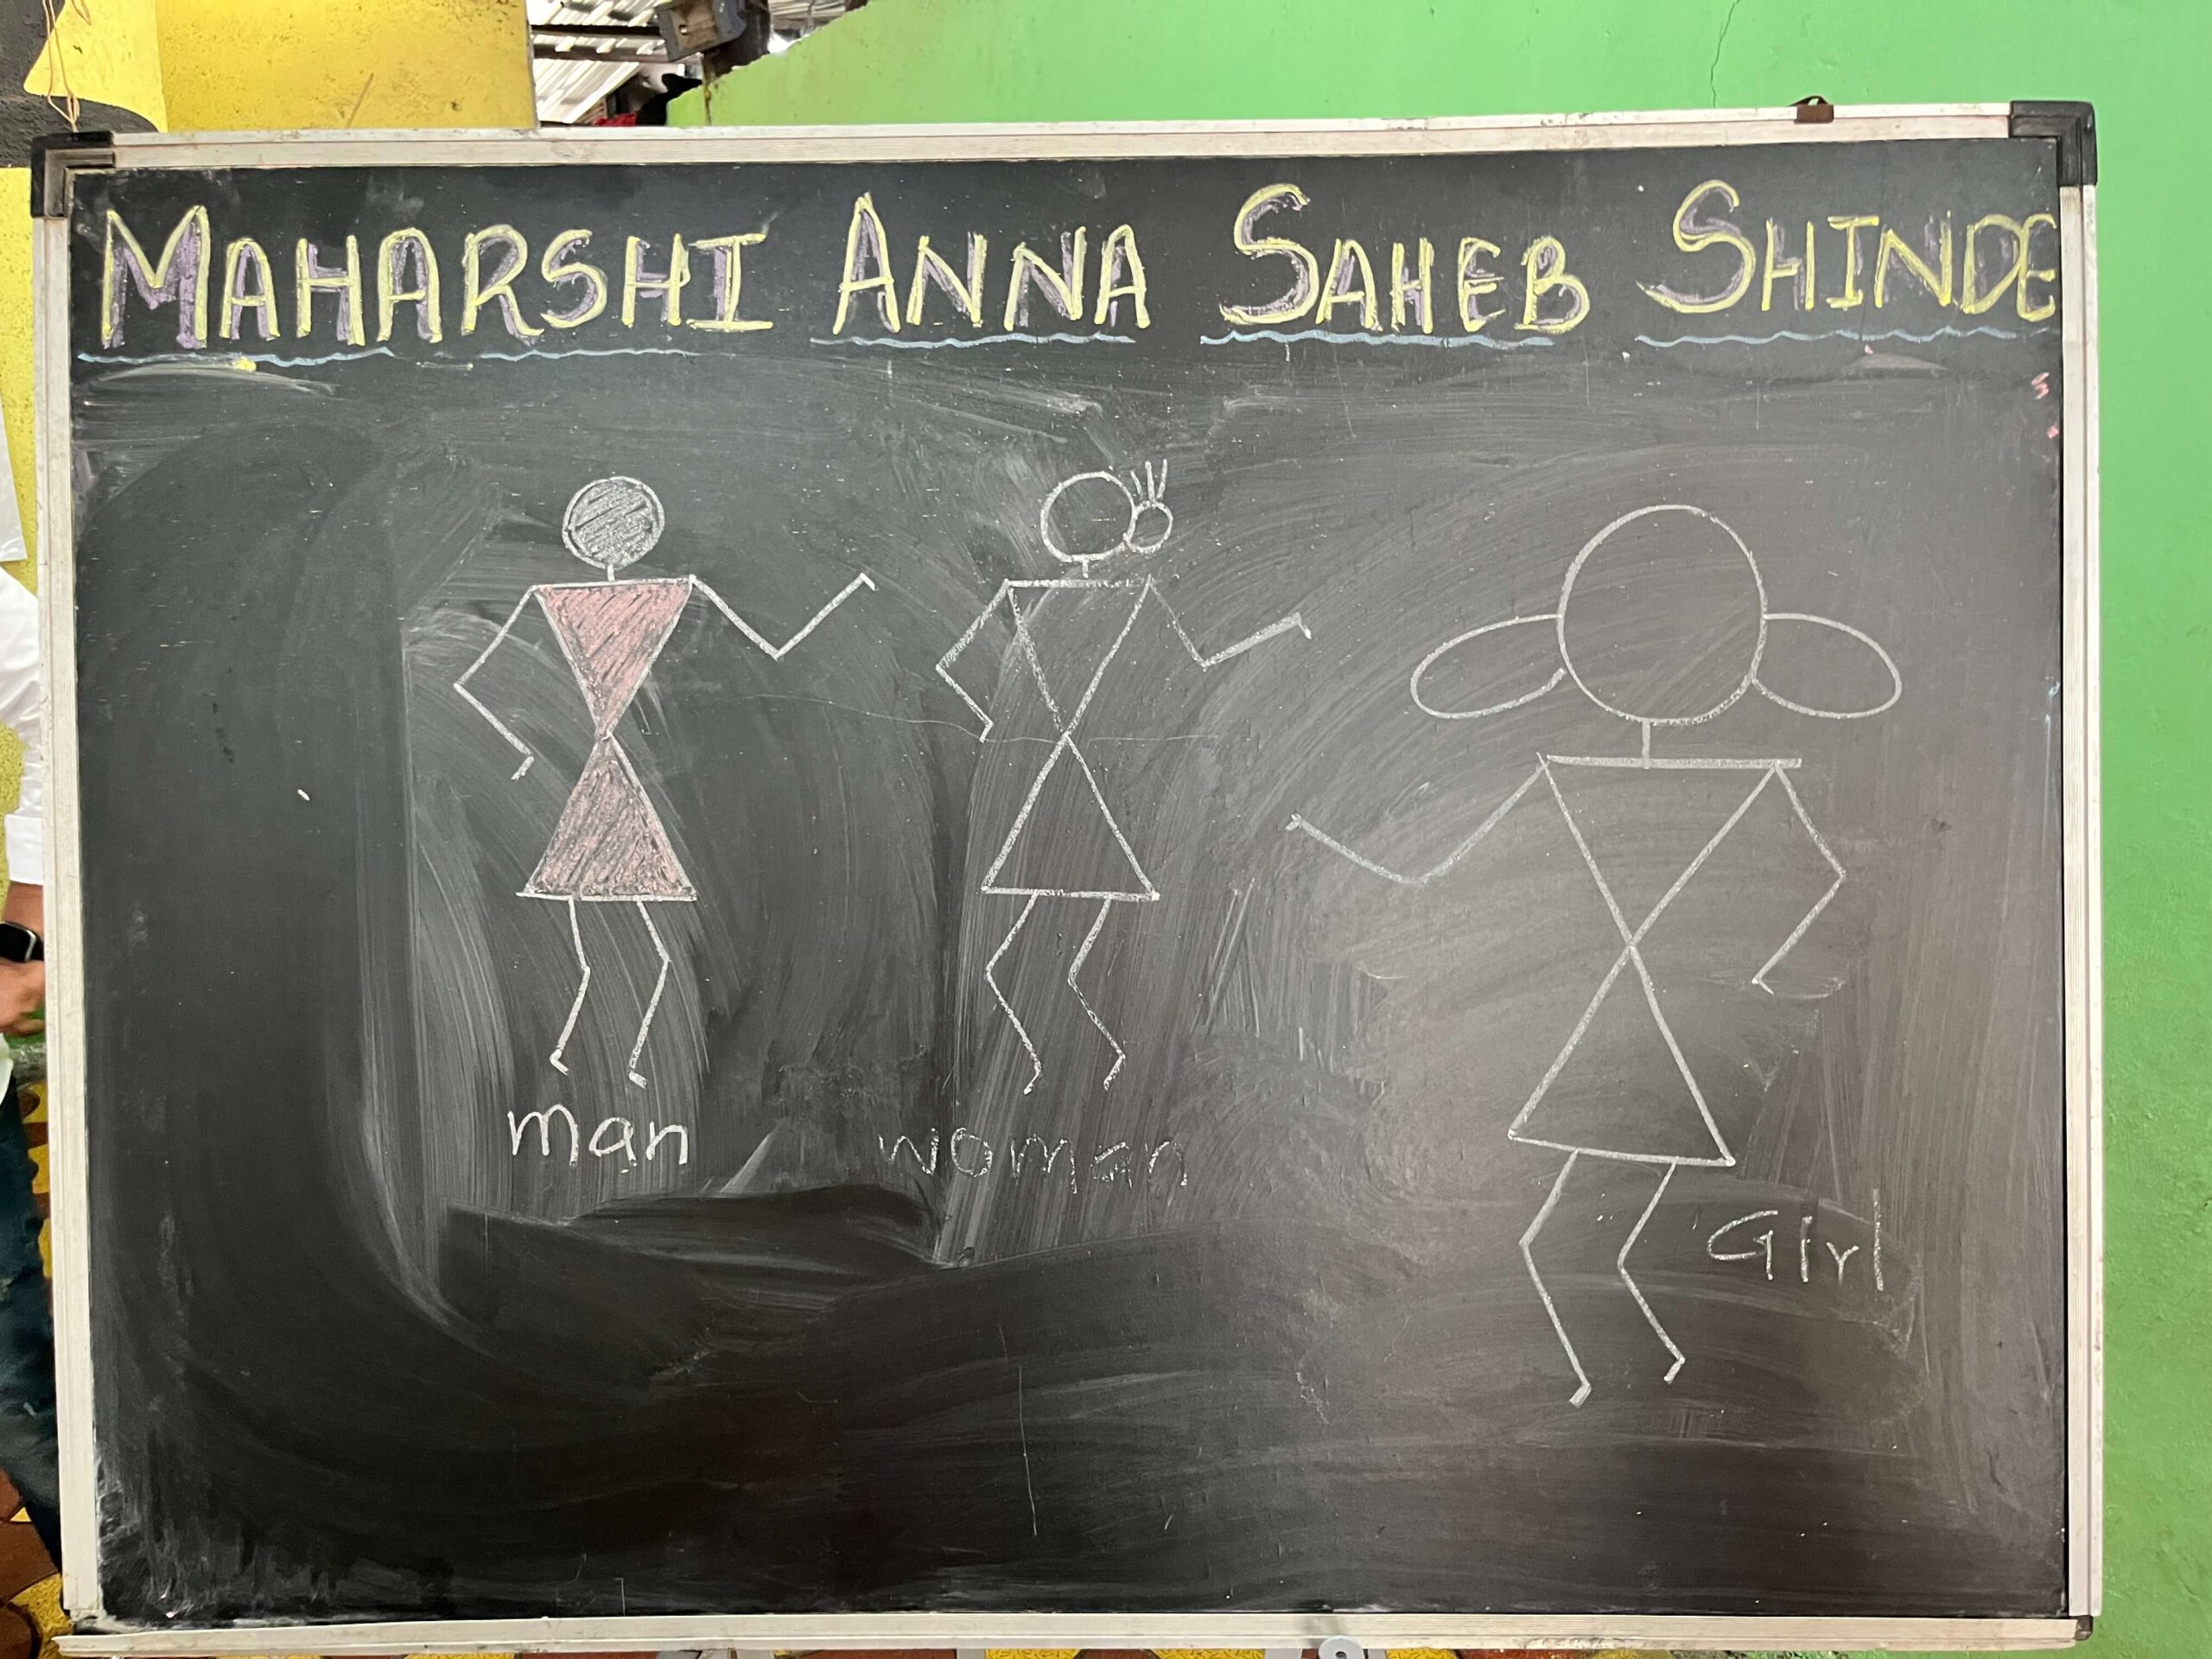 MAHARSHI ANNA SAHEB SHINDE
man
woman
Girl